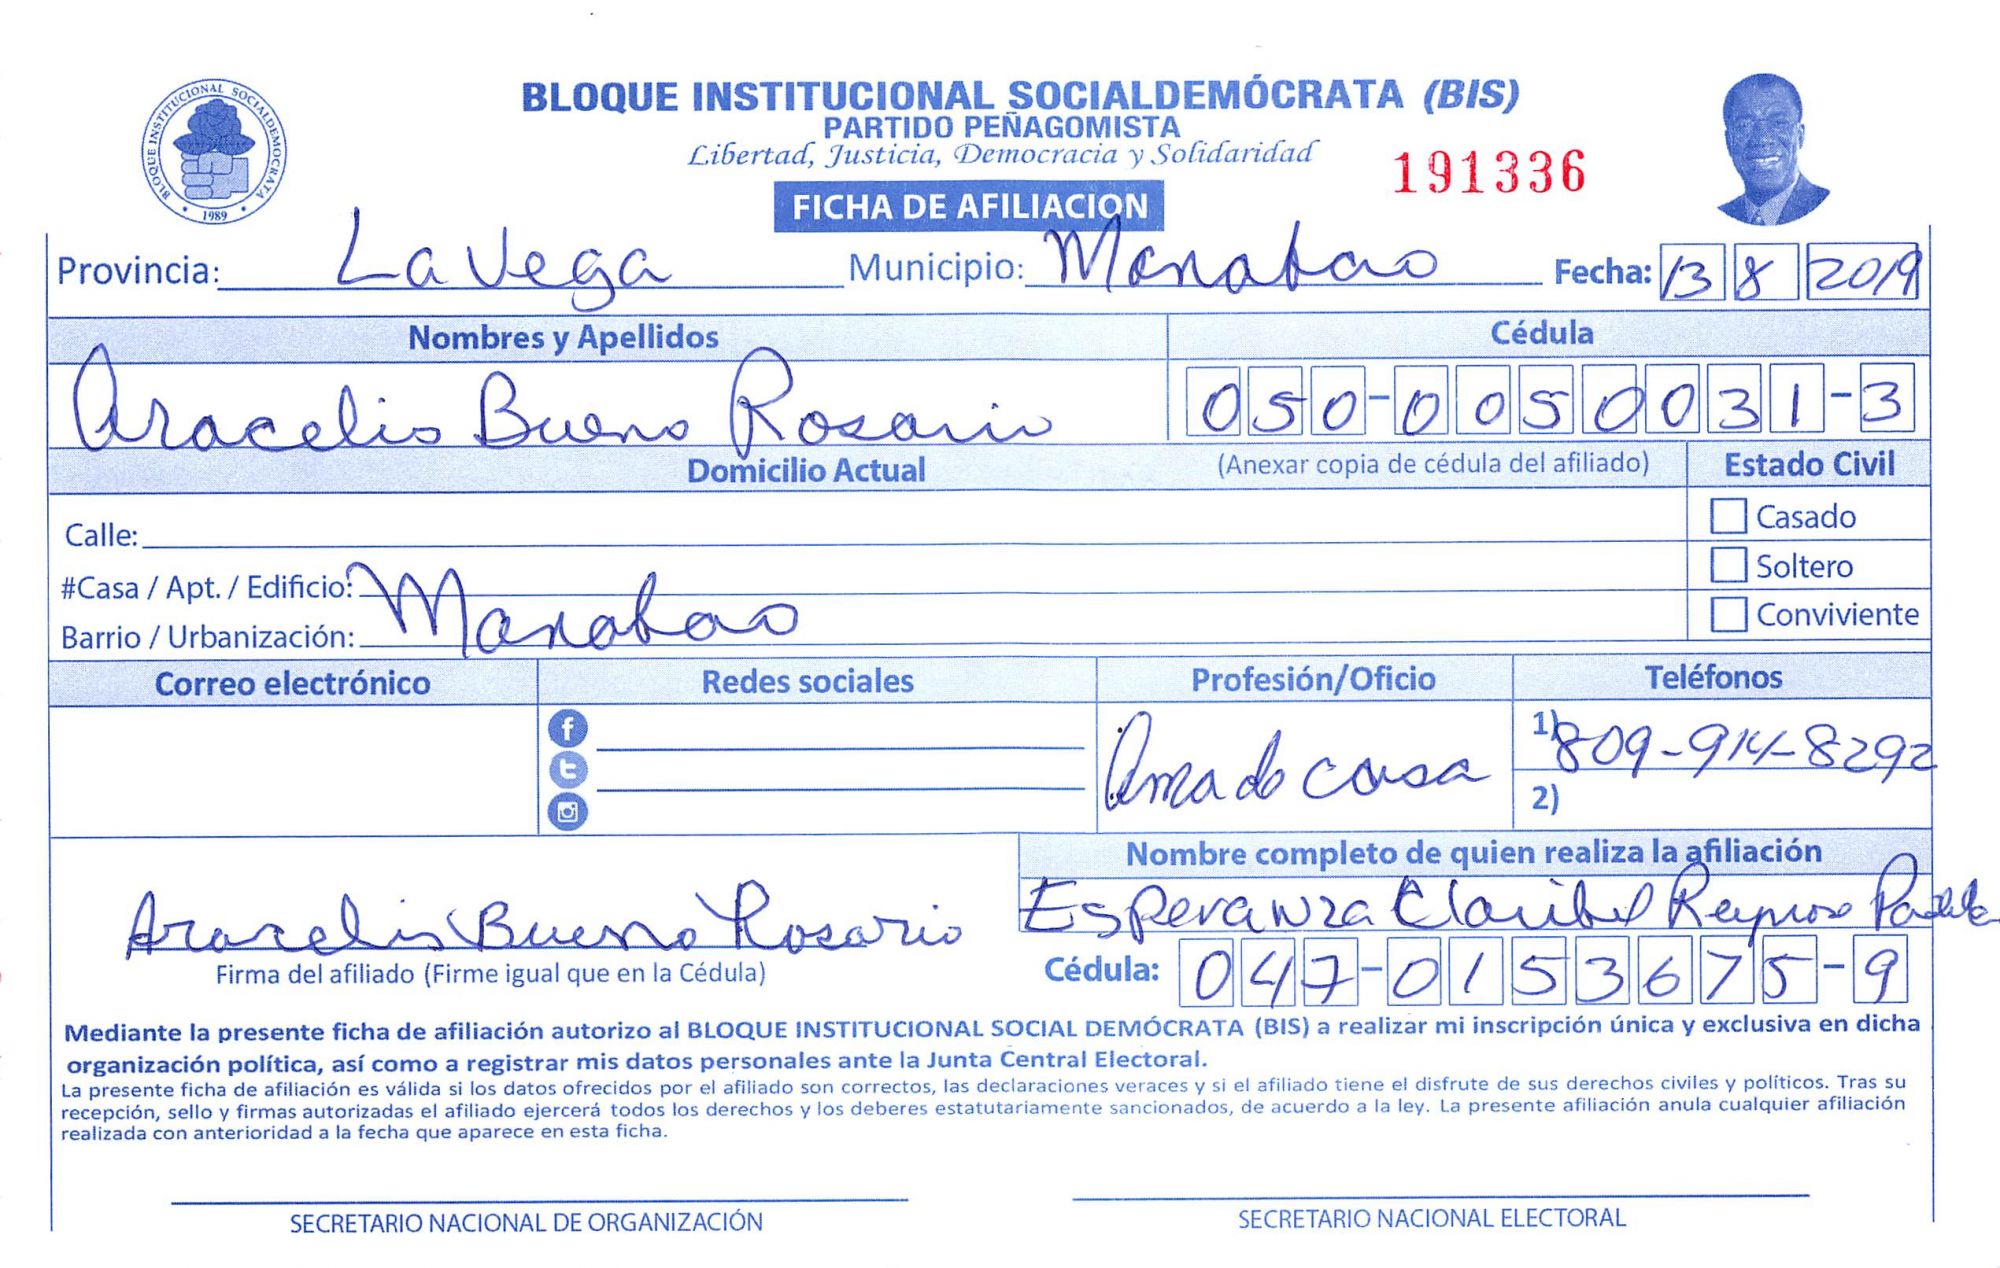 BLOQUE INSTITUCIONAL SOCIALDEMOCRATA
1989
BLOQUE INSTITUCIONAL SOCIALDEMÓCRATA (BIS)
PARTIDO PEÑAGOMISTA
Libertad, Justicia, Democracia y Solidaridad
191336
FICHA DE AFILIACION
Provincia: La Vega Municipio: Manabao Fecha: 13 8 2019
Nombres y Apellidos Cédula
Aracelis Bueno Rosario 050-0050031-3
Domicilio Actual (Anexar copia de cédula del afiliado) Estado Civil
Calle: Casado
#Casa / Apt. / Edificio: Soltero
Barrio / Urbanización: Manabao Conviviente
Correo electrónico Redes sociales Profesión/Oficio Teléfonos
Ama de casa 1) 809-914-8292
2)
Nombre completo de quien realiza la afiliación
Aracelis Bueno Rosario Esperanza Claribel Reynoso
Firma del afiliado (Firme igual que en la Cédula) Cédula: 047-0153675-9
Mediante la presente ficha de afiliación autorizo al BLOQUE INSTITUCIONAL SOCIAL DEMÓCRATA (BIS) a realizar mi inscripción única y exclusiva en dicha
organización política, así como a registrar mis datos personales ante la Junta Central Electoral.
La presente ficha de afiliación es válida si los datos ofrecidos por el afiliado son correctos, las declaraciones veraces y si el afiliado tiene el disfrute de sus derechos civiles y políticos. Tras su
recepción, sello y firmas autorizadas el afiliado ejercerá todos los derechos y los deberes estatutariamente sancionados, de acuerdo a la ley. La presente afiliación anula cualquier afiliación
realizada con anterioridad a la fecha que aparece en esta ficha.
SECRETARIO NACIONAL DE ORGANIZACIÓN SECRETARIO NACIONAL ELECTORAL